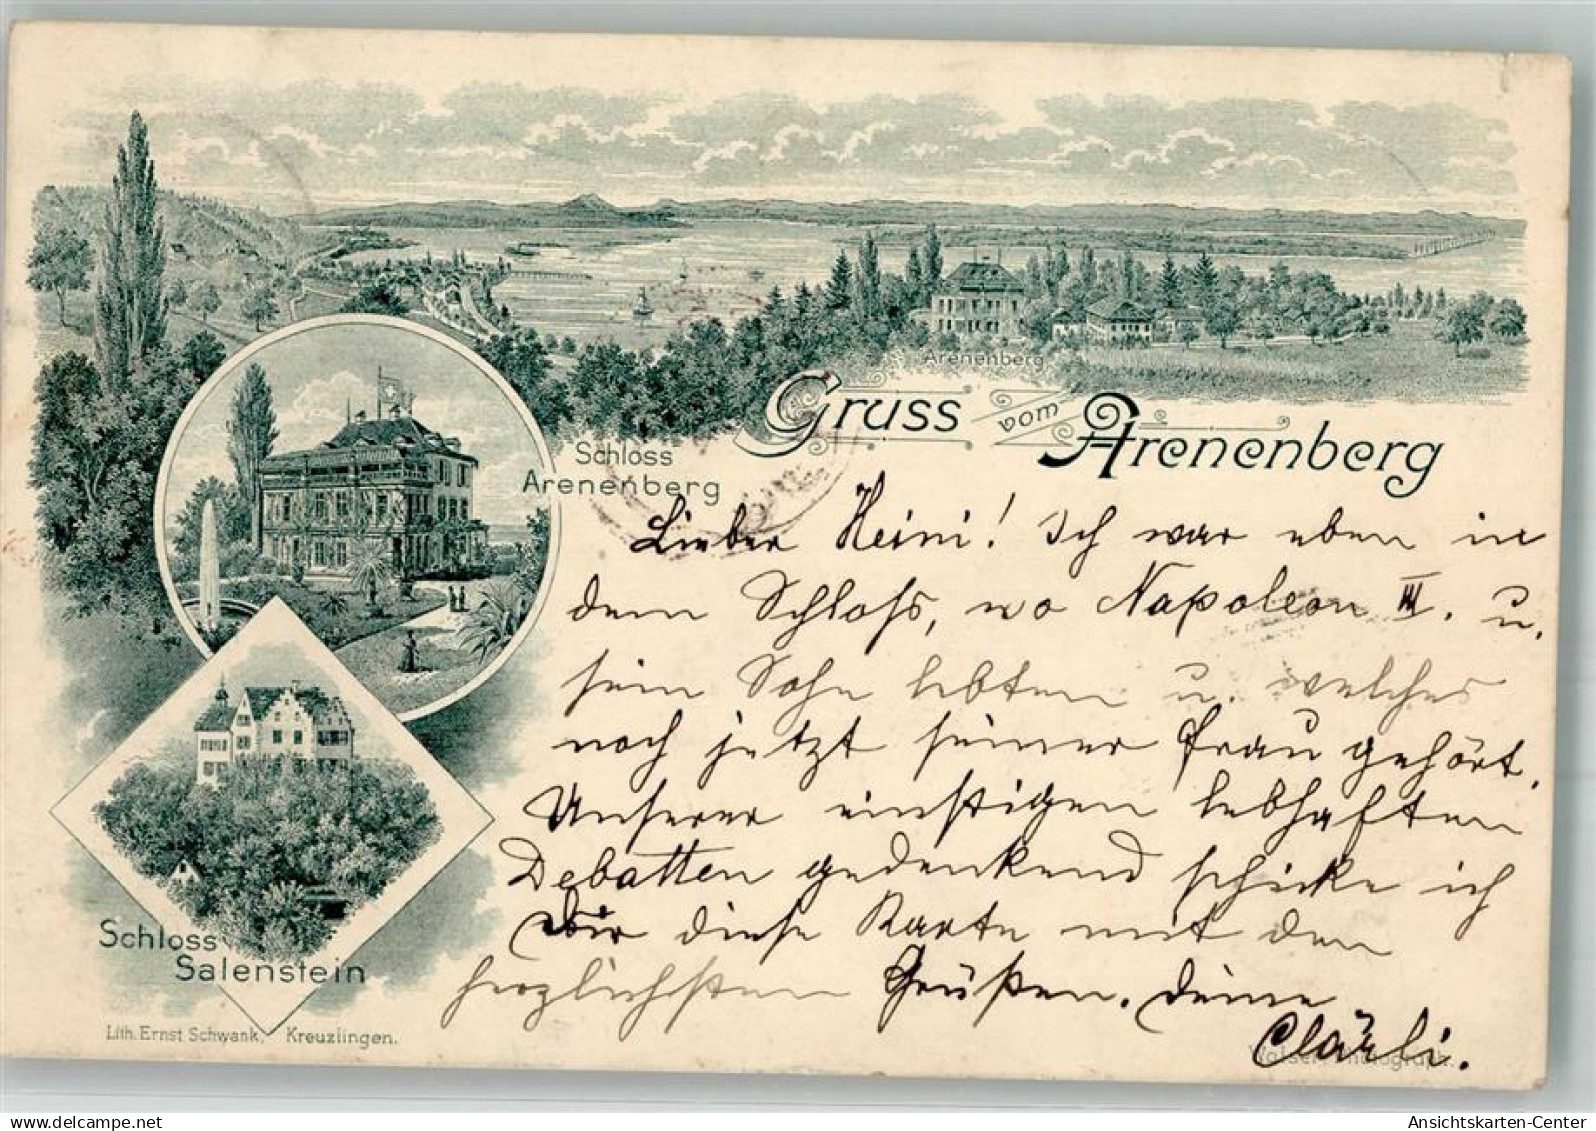 Arenenberg
Gruss vom Arenenberg
Schloss
Arenenberg
Lieber Heini! Ich war eben in
dem Schloss, wo Napoleon III. u.
sein Sohn lebten u. welches
noch jetzt seiner Frau gehört.
Unserer einstigen lebhaften
Debatten gedenkend schicke ich
Dir diese Karte mit den
herzlichsten Grüßen. Deine
Clärli.
Schloss
Salenstein
Lith. Ernst Schwank, Kreuzlingen.
Photograph.
delcampe.net
Ansichtskarten-Center